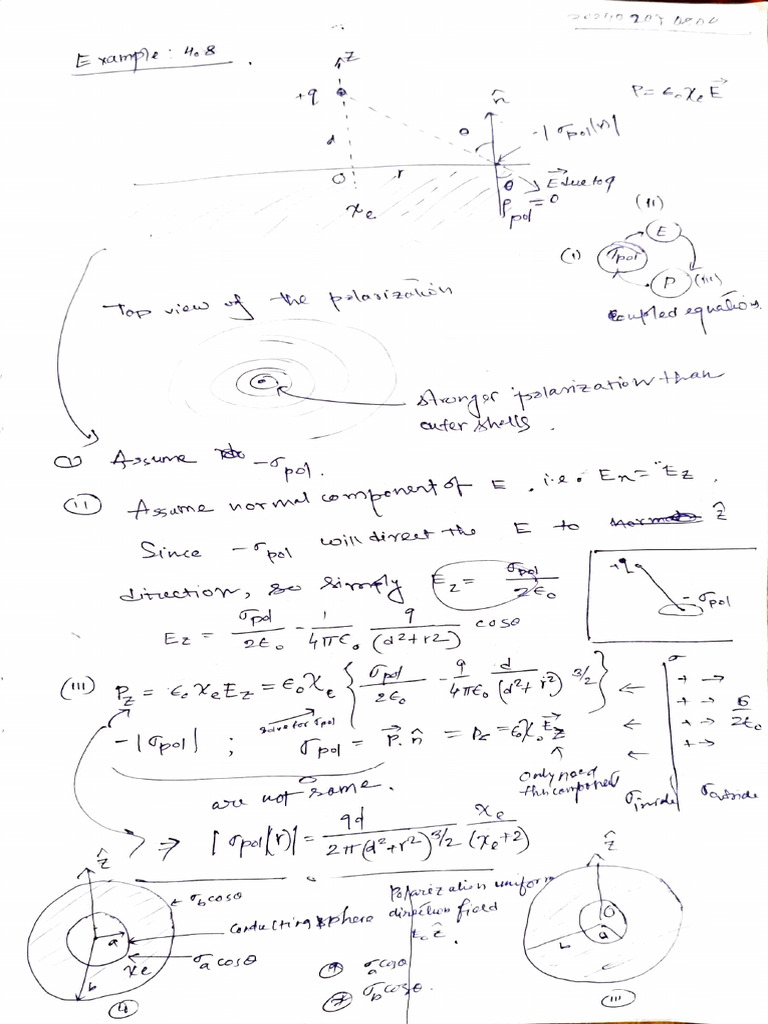 Example: 4.8
Z
+q
n̂
P = ε₀ χₑ E⃗
d
θ
-|σpol(r)|
O
r
θ
E⃗ due to q
Ppol = 0
χₑ
(ii)
E
(i)
σpol
P
(iii)
coupled equations.
Top view of the polarization
stronger polarization than
outer shells.
(i) Assume -σpol.
(ii) Assume normal component of E, i.e. En = Ez.
Since -σpol will direct the E to ẑ
direction, so simply Ez = σpol/2ε₀
+q
-σpol
Ez = σpol/2ε₀ - 1/4πε₀ q/(d²+r²) cosθ
(iii) Pz = ε₀ χₑ Ez = ε₀ χₑ { σpol/2ε₀ - q/4πε₀ d/(d²+r²)^3/2 }
σ
+ →
+ →
+ →
+ →
σ/2ε₀
←
←
←
-|σpol| ; solve for σpol σpol = P⃗.n̂ = Pz = ε₀χₑ E⃗z
are not same.
Only need
this component
σinside
σoutside
⇒ |σpol(r)| = qd/2π(d²+r²)^3/2 χₑ/(χₑ+2)
ẑ
σb cosθ
conducting sphere
a
σa cosθ
χₑ
b
Polarization uniform
direction field
to ẑ.
σa cosθ
σb cosθ.
ẑ
O
a
b
(iii)